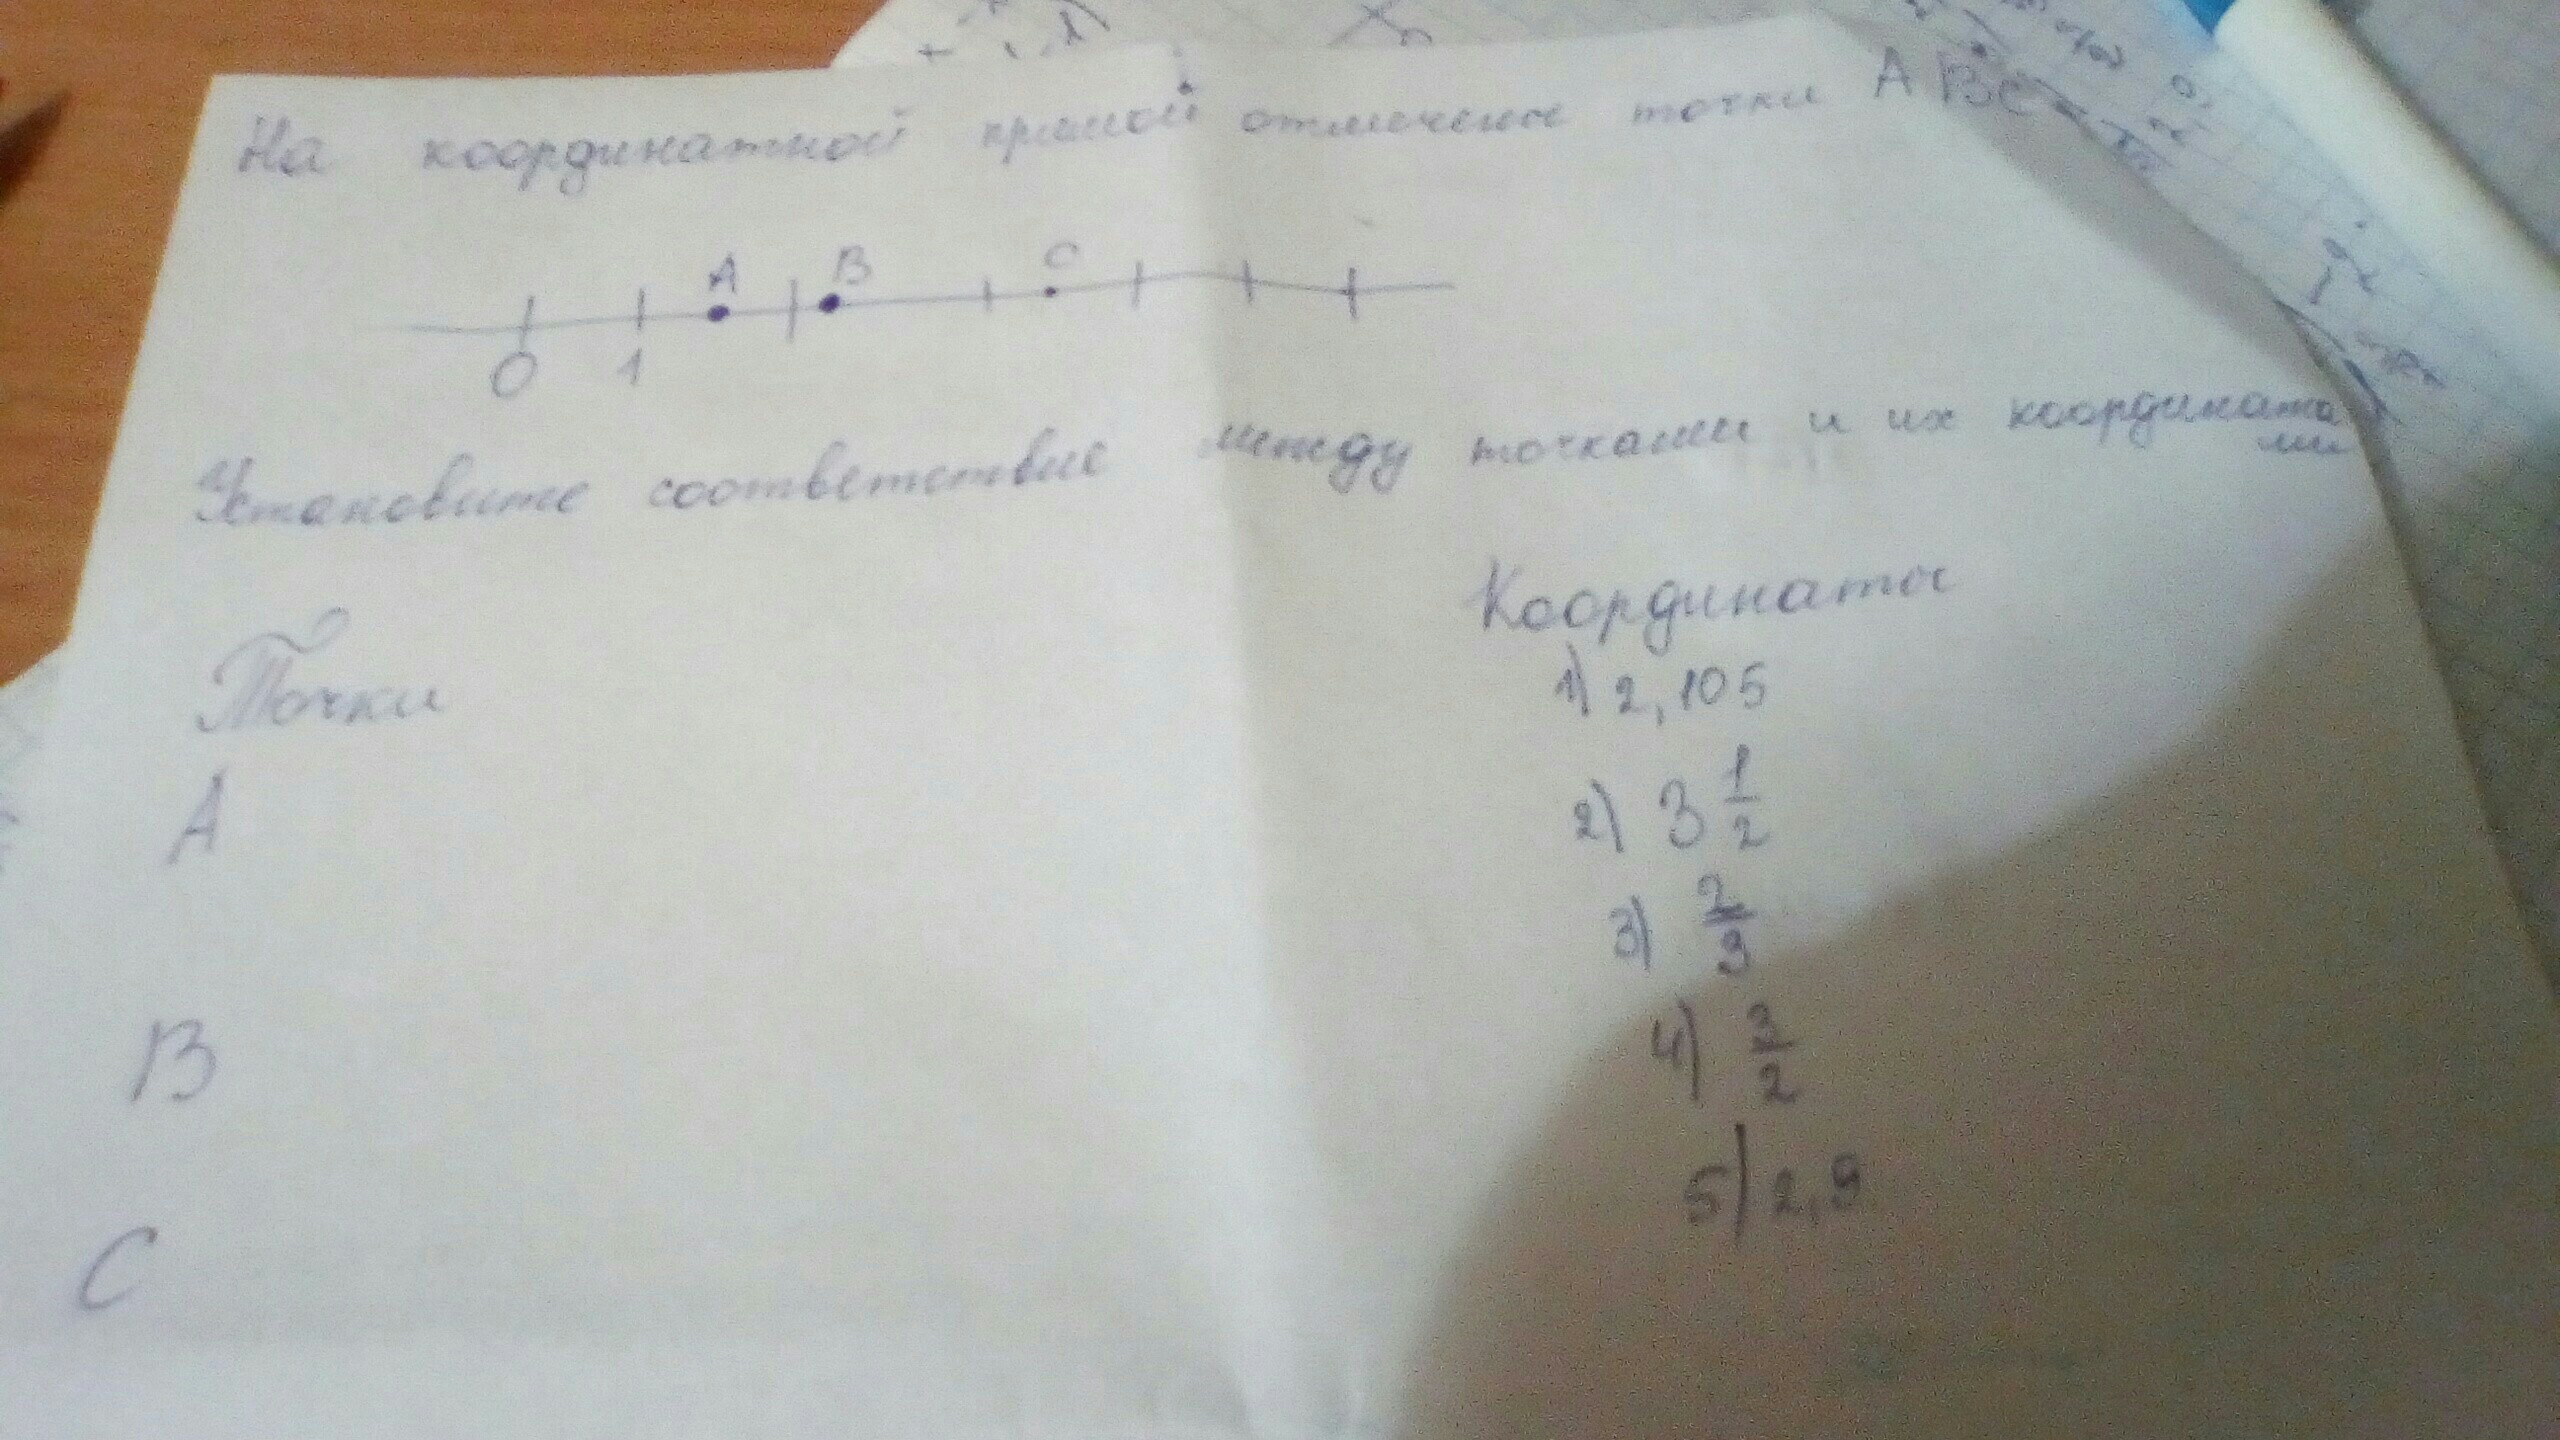 На координатной прямой отмечены точки A B C
A B C
0 1
Установите соответствие между точками и их координата
ми
Точки Координаты
A 1) 2,105
2) 3 1/2
3) 2/9
B 4) 3/2
C 5) 2,9